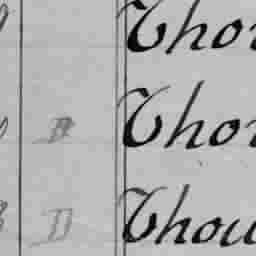 Thor
D Thor
D Thou